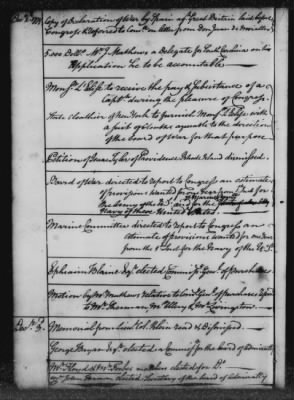 Dec.r 2.d 1779
Copy of Declaration of War by Spain ag.t Great Britain laid before
Congress & referred to Com.ee on letter from Don Juan de Miralles
5.000 Doll.rs M.r J Mathews a Delegate for South Carolina on his
Application He to be accountable
Mons.r L'Eglise to receive the pay & subsistence of a
Capt.n during the pleasure of Congress.
Clothier of New York to furnish Mons.r L'Eglise with
a suit of Clothes agreeable to the direction
of the board of War for that purpose
Petition of Tyler of Providence Rhode Island dismissed.
Board of War directed to report to Congress an estimate
of provisions wanted from for
the Army of the U.S. and for the
Navy of these United States.
Marine Committee directed to report to Congress an
estimate of provisions wanted for one year
from the for the Navy of the U.S.
Ephraim Blaine Esq.r elected Commiss.y Gen.l of purchases
Motion by M.r Mathews relative to Com.y Gen.l of purchases
to M.r Sherman, M.r Ellery & M.r Livingston.
Dec.r 3.
Memorial from Lieut. Col. Klein read & dismissed.
George Bryan Esq.r elected a Commiss.r for the board of Admiralty
M.r Floyd & M.r Forbes elected for D.o
John Brown elected Secretary of the board of Admiralty